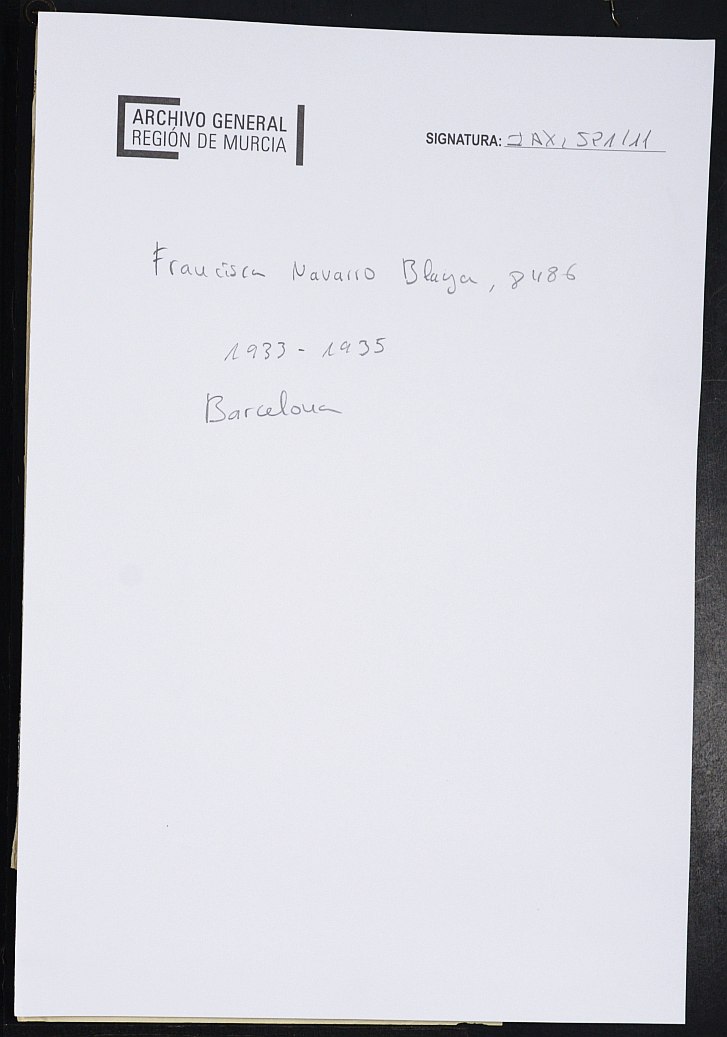 ARCHIVO GENERAL
REGIÓN DE MURCIA
SIGNATURA: JAX, 521/11
Francisca Navarro Blaya, 8486
1933 - 1935
Barcelona